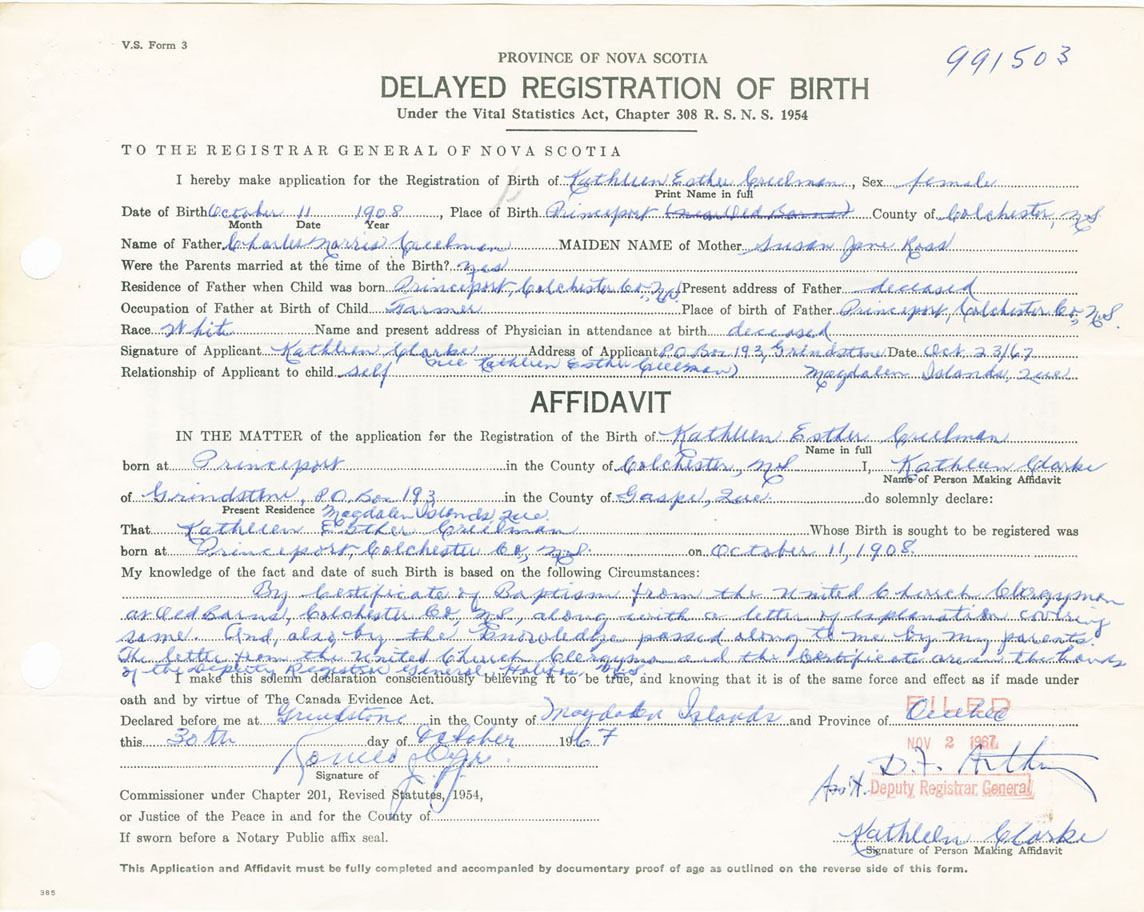 V.S. Form 3
991503
PROVINCE OF NOVA SCOTIA
DELAYED REGISTRATION OF BIRTH
Under the Vital Statistics Act, Chapter 308 R. S. N. S. 1954
TO THE REGISTRAR GENERAL OF NOVA SCOTIA
I hereby make application for the Registration of Birth of Kathleen Esther Creelman, Sex female
Print Name in full
Date of Birth October 11 1908, Place of Birth Princeport (near Old Barns) County of Colchester, NS
Month Date Year
Name of Father Charles Norris Creelman MAIDEN NAME of Mother Susan Jane Ross
Were the Parents married at the time of the Birth? yes
Residence of Father when Child was born Princeport, Colchester Co., N.S. Present address of Father deceased
Occupation of Father at Birth of Child Farmer Place of birth of Father Princeport, Colchester Co., N.S.
Race White Name and present address of Physician in attendance at birth deceased
Signature of Applicant Kathleen Clarke Address of Applicant P.O Box 193, Grindstone Date Oct. 23/67
Relationship of Applicant to child self (nee Kathleen Esther Creelman) Magdalen Islands, Que
AFFIDAVIT
IN THE MATTER of the application for the Registration of the Birth of Kathleen Esther Creelman
Name in full
born at Princeport in the County of Colchester, NS I, Kathleen Clarke
Name of Person Making Affidavit
of Grindstone, P.O. Box 193 in the County of Gaspe, Que. do solemnly declare:
Present Residence Magdalen Islands Que.
That Kathleen Esther Creelman Whose Birth is sought to be registered was
born at Princeport, Colchester Co., N.S. on October 11, 1908.
My knowledge of the fact and date of such Birth is based on the following Circumstances:
By Certificate of Baptism from the United Church Clergyman
at Old Barns, Colchester Co, N.S., along with a letter of explanation covering
same. And, also by the knowledge passed along to me by my parents.
The letter from the United Church Clergyman and the Certificate are in the hands
of the Deputy Registrar General Halifax, N.S.
I make this solemn declaration conscientiously believing it to be true, and knowing that it is of the same force and effect as if made under
oath and by virtue of The Canada Evidence Act.
FILED
Declared before me at Grindstone in the County of Magdalen Islands and Province of Quebec
this 30th day of October 1967
NOV 2 1967
Signature of
J.P.
D.F. Arthur
Ass't. Deputy Registrar General
Commissioner under Chapter 201, Revised Statutes, 1954,
or Justice of the Peace in and for the County of
If sworn before a Notary Public affix seal.
Kathleen Clarke
Signature of Person Making Affidavit
This Application and Affidavit must be fully completed and accompanied by documentary proof of age as outlined on the reverse side of this form.
365